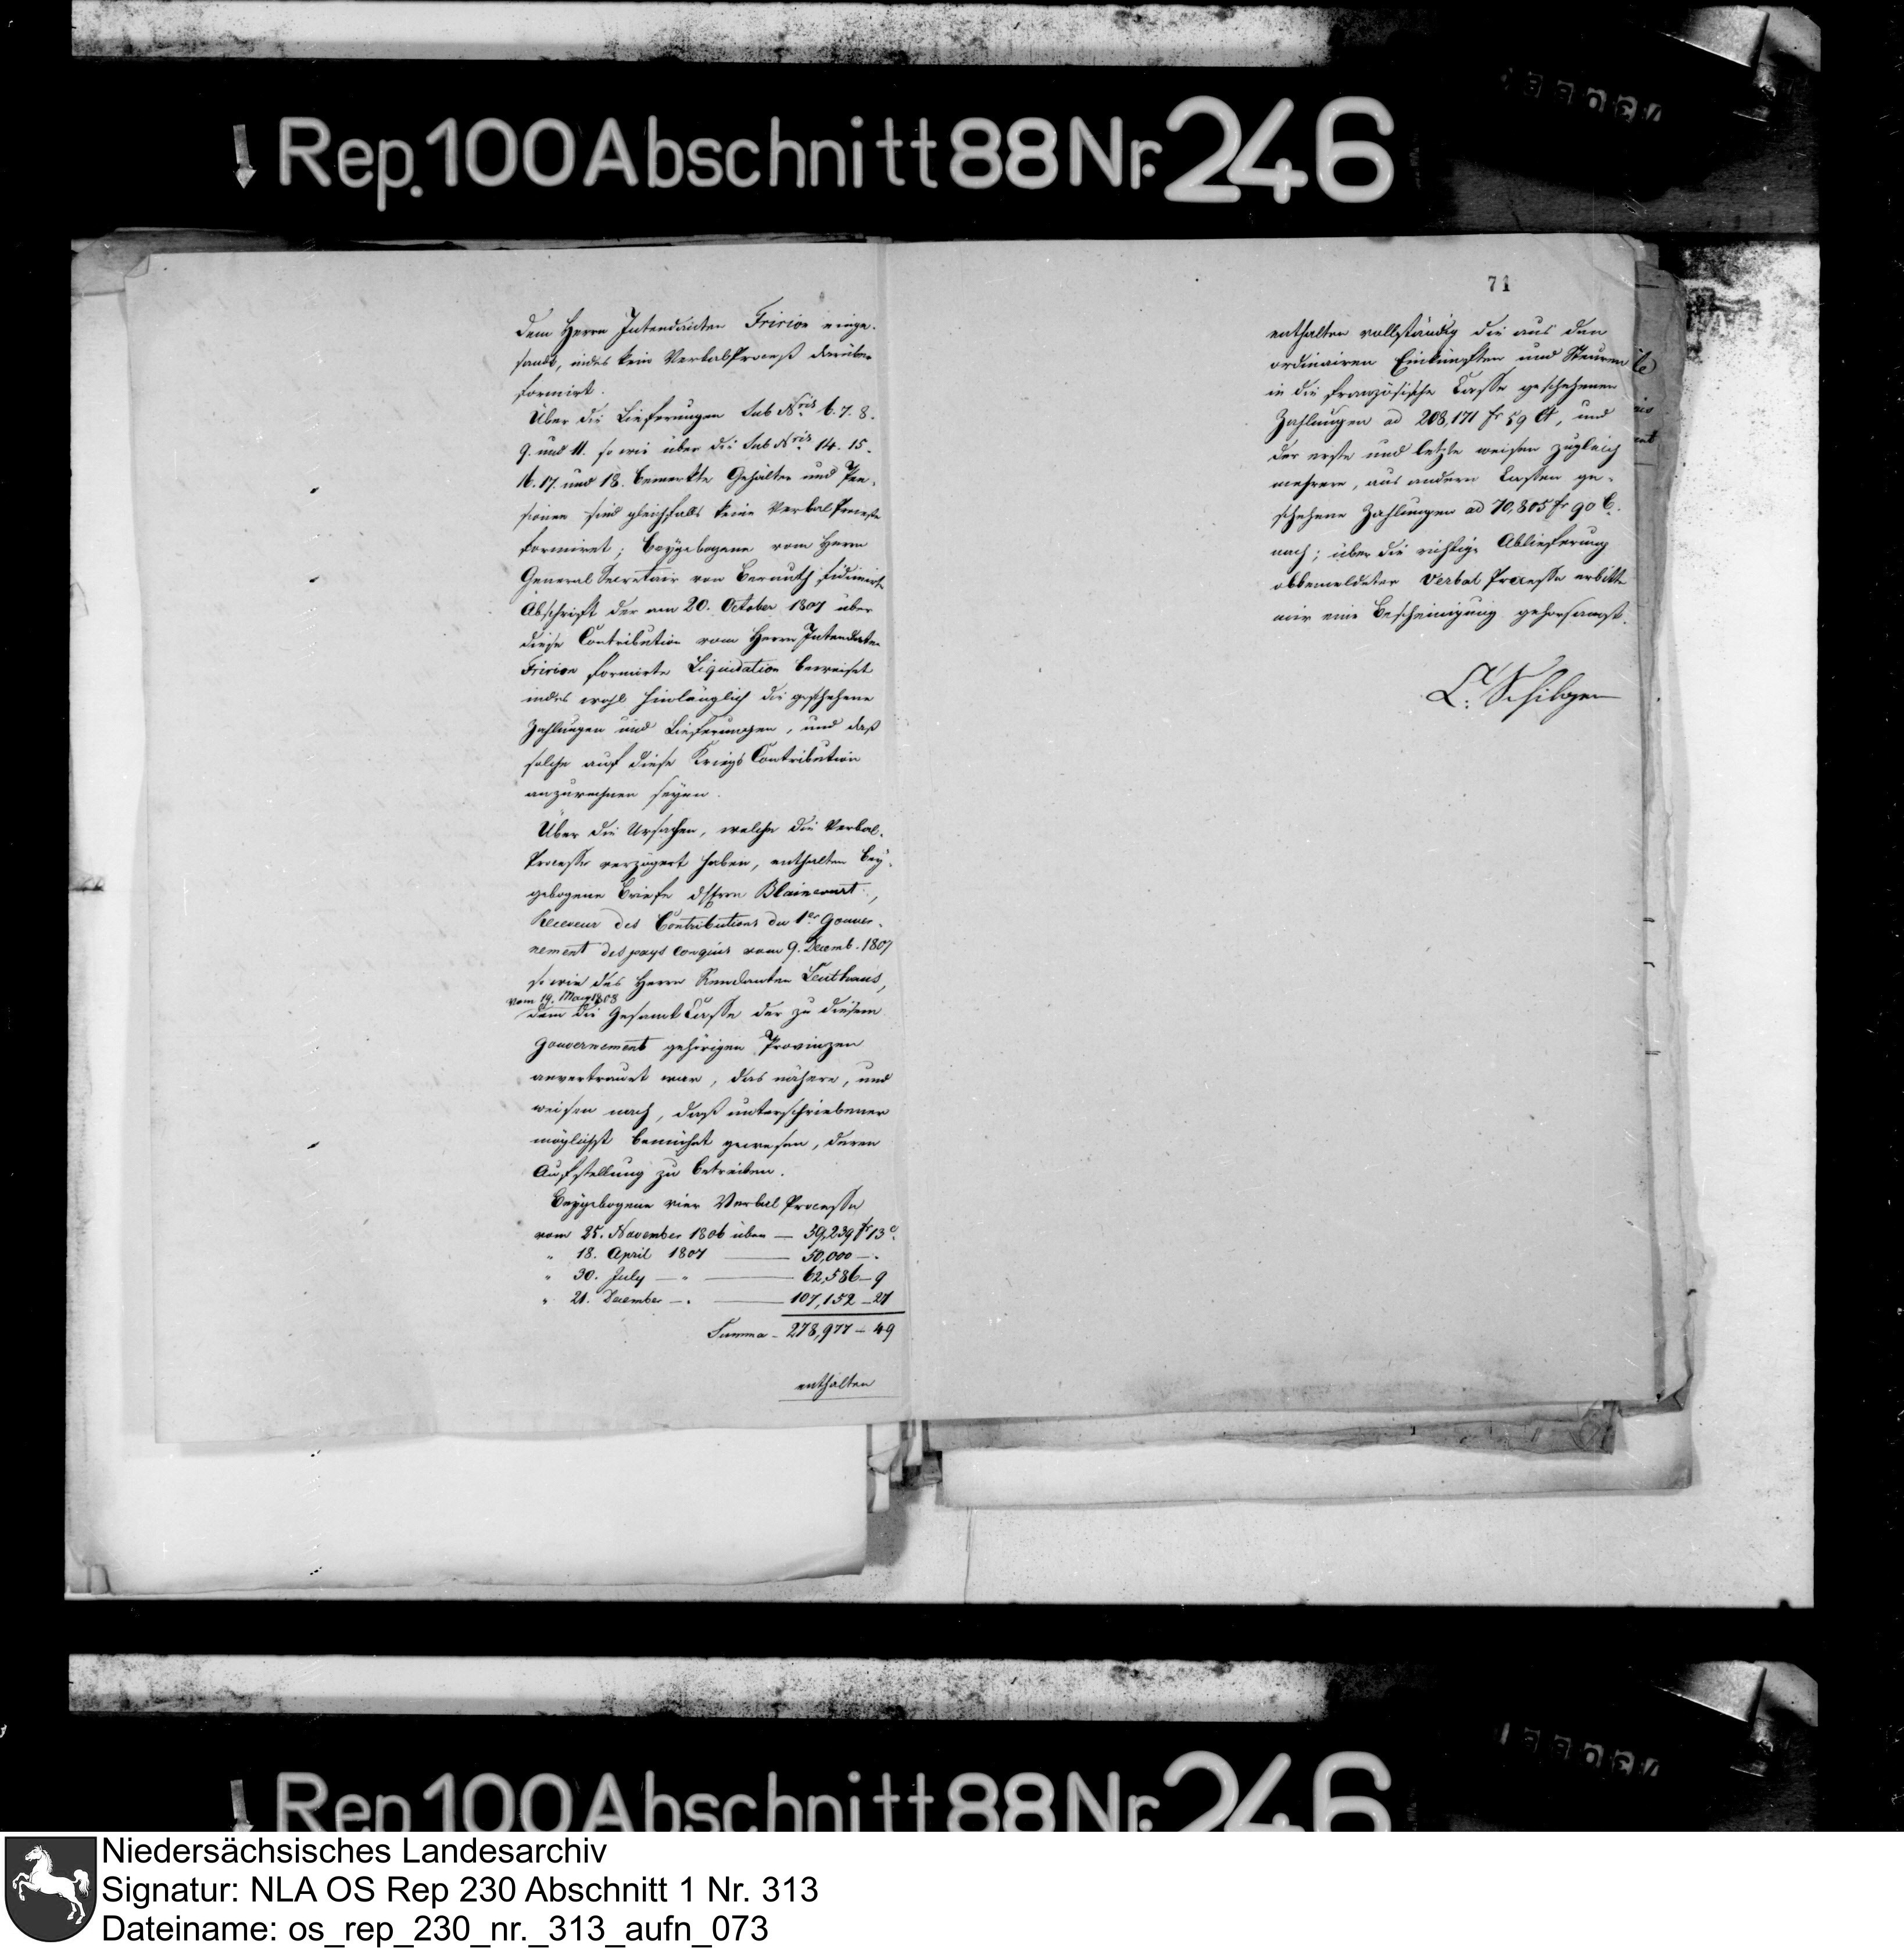 Rep. 100 Abschnitt 88 Nr. 246
dem Herrn Intendanten Fririon einge-
sandt, indes kein VerbalProceß darüber
formirt.
Über die Lieferungen sub Nris 6. 7. 8.
9. und 11. so wie über die sub Nris 14. 15.
16. 17. und 18. bemerkte Gehälter und Pen-
sionen sind gleichfalls keine VerbalProcesse
formiret; beygebogene vom Herrn
General Secretair von Bernuth fidimirte
Abschrift der am 20. October 1807 über
diese Contribution vom Herrn Intendanten
Fririon formirte Liquidation beweiset
indes wohl hinlänglich die geschehene
Zahlungen und Lieferungen, und daß
solche auf diese Kriegs Contribution
anzurechnen seyen.
Über die Ursachen, welche die Verbal-
Processe verzögert haben, enthalten bey-
gebogene Briefe des Herrn Blaincourt,
Receveur des Contributions du 1er Gouver-
nement des pays conquis vom 9. Decemb. 1807
so wie des Herrn Rendanten Leuthaus,
vom 19. May 1808
dem die Gesamt Casse der zu diesem
Gouvernement gehörigen Provinzen
anvertrauet war, das nähere, und
weisen nach, daß unterschriebener
möglichst bemühet gewesen, deren
Aufstellung zu betreiben.
Beygebogene vier Verbal Processe
vom 25. November 1806 über — 59,239 fr 13 c.
" 18. April 1807 — 50,000 — .
" 30. July — " — 62,586 — 9
" 21. December — . — 107,152 — 27
Summa - 278,977 — 49
enthalten
71
enthalten vollständig die aus den
ordinairen Einkünften und Steuern
in die französische Casse geschehenen
Zahlungen ad 208,171 fr 59 Ct, und
der erste und letzte weisen zugleich
mehrere, aus andern Cassen ge-
schehene Zahlungen ad 70,805 fr 90 C.
nach; über die richtige Ablieferung
obbemeldeter Verbal Processe erbitte
mir eine Bescheinigung gehorsamst.
C. Schilgen
Rep. 100 Abschnitt 88 Nr. 246
Niedersächsisches Landesarchiv
Signatur: NLA OS Rep 230 Abschnitt 1 Nr. 313
Dateiname: os_rep_230_nr._313_aufn_073